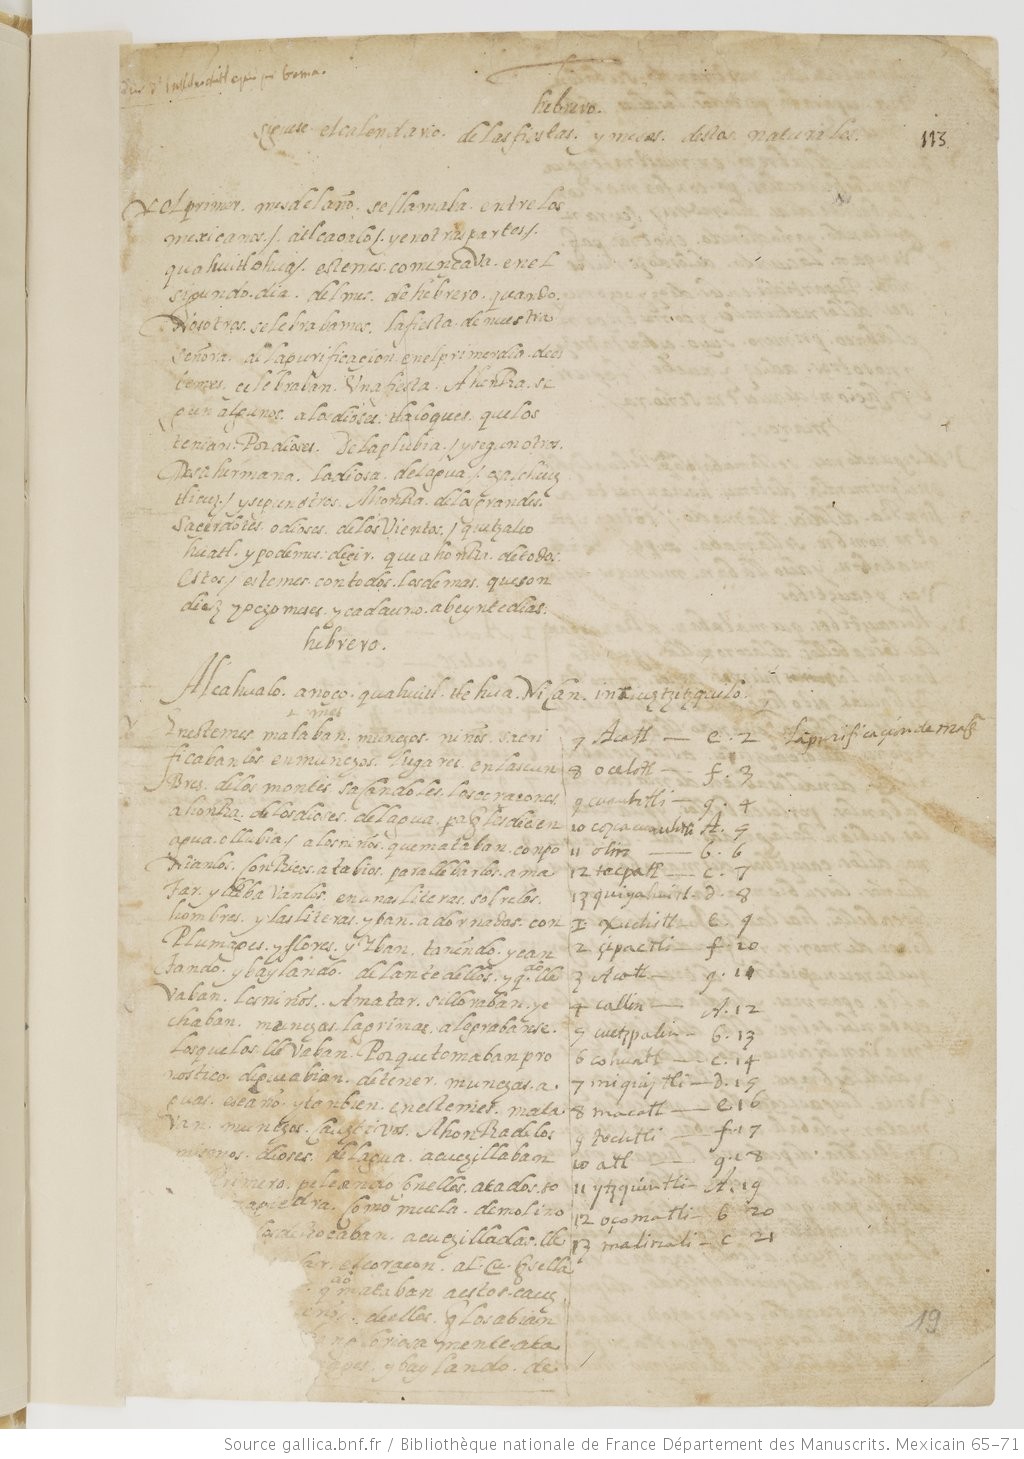 hebrero.
siguese el calendario. de las fiestas. y meses. destos. naturales.
113
el primer. mes del año. se llamaba. entre los
mexicanos / atlcaoalo /. y en otras partes /.
quahuitlehua /. este mes. comencava. en el
sigundo. dia. del mes. de hebrero. quando.
Nosotros. selebrabamos. la fiesta. de nuestra
señora. de la purificacion. en el primer dia. des
te mes. celebraban. Vna fiesta. A honRa. se
gun algunos. a los dioses. tlaloques. que los
tenian. Por dioses. De la plubia. / y segun otros.
De su hermana. la diosa. del agua /. chalchiuh
tlicue /. y segun otros. A honRa. de los grandes.
sacerdotes. o dioses. de los Vientos. / quetzalco
huatl. y podemos. dicir. que a honRa. de todos.
estos / este mes. con todos. los demas. que son
diez y ocho meses. y cada uno. a beynte dias.
hebrero.
Atlcahualo. anoço. quahuitl. ehua. Nican.
En este mes mataban. munchos. niños. sacri
ficabanlos en munchos. lugares. en las cun
bres. de los montes sacandoles. los coraçones
a honRa. de los dioses. del agua. para que les dien
agua. o llubia / a los niños. que mataban. conpo
nianlos. con Ricos. atabios. para llebarlos. a ma
tar. y llebavanlos. en unas literas. sobre los.
hombros. y las literas. yban. adornadas. con
Plumages. y flores. y yban. tañendo. y can
tando. y baylando. delante dellos. y quando lle
vaban. los niños. A matar. si lloraban. y e
chaban. munchas lagrimas. alegrabanse.
los que los llevaban. Porque tomaban pro
nostico. de que abian. de tener. munchas. a
guas. ese año. y tanbien. en este mes. mata
van. munchos. cautivos. A honRa de los
mismos. dioses. del agua. acuchillaban
primero. peleando con ellos. atados. so
piedra. como muela. de molino
los deRocaban. a cuchilladas. lle
el coraçon. al cu. q se lla
quando mataban a estos. cauti
de ellos. q los abian
mente. ata
y baylando. de
7 Acatl — e. 2 la purificacion de
8 ocelotl — f. 3
9 cuauhtli — g. 4
10 cozcacuauhtli A. 5
11 olin — b. 6
12 tecpatl — c. 7
13 quiyahuitl — d. 8
I Xuchitl — e. 9
2 çipactli — f. 10
3 Acatl — g. 11
4 callin — A. 12
5 cuetzpalin — b. 13
6 cohuatl — c. 14
7 miquiztli — d. 15
8 maçatl — e 16
9 tochtli — f. 17
10 atl — g. 18
11 ytzquintli — A. 19
12 oçomatli — b 20
13 malinali — c 21
19
Source gallica.bnf.fr / Bibliothèque nationale de France Département des Manuscrits. Mexicain 65-71